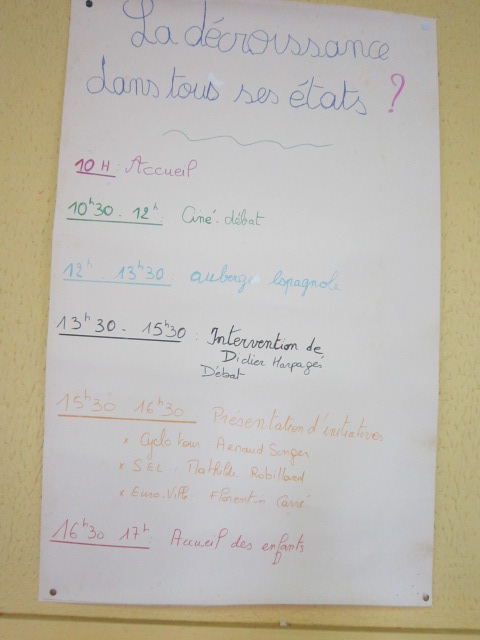 La décroissance
dans tous ses états ?
10H : Accueil
10h30 - 12h : Ciné-débat
12h - 13h30 : auberge espagnole
13h30 - 15h30 : Intervention de
Didier Harpagès
Débat
15h30 16h30 Présentation d'initiatives
x Cyclo tour Arnaud
x SEL : Mathilde Robillard
x Euro-Ville Florentin Carré
16h30 17h : Accueil des enfants